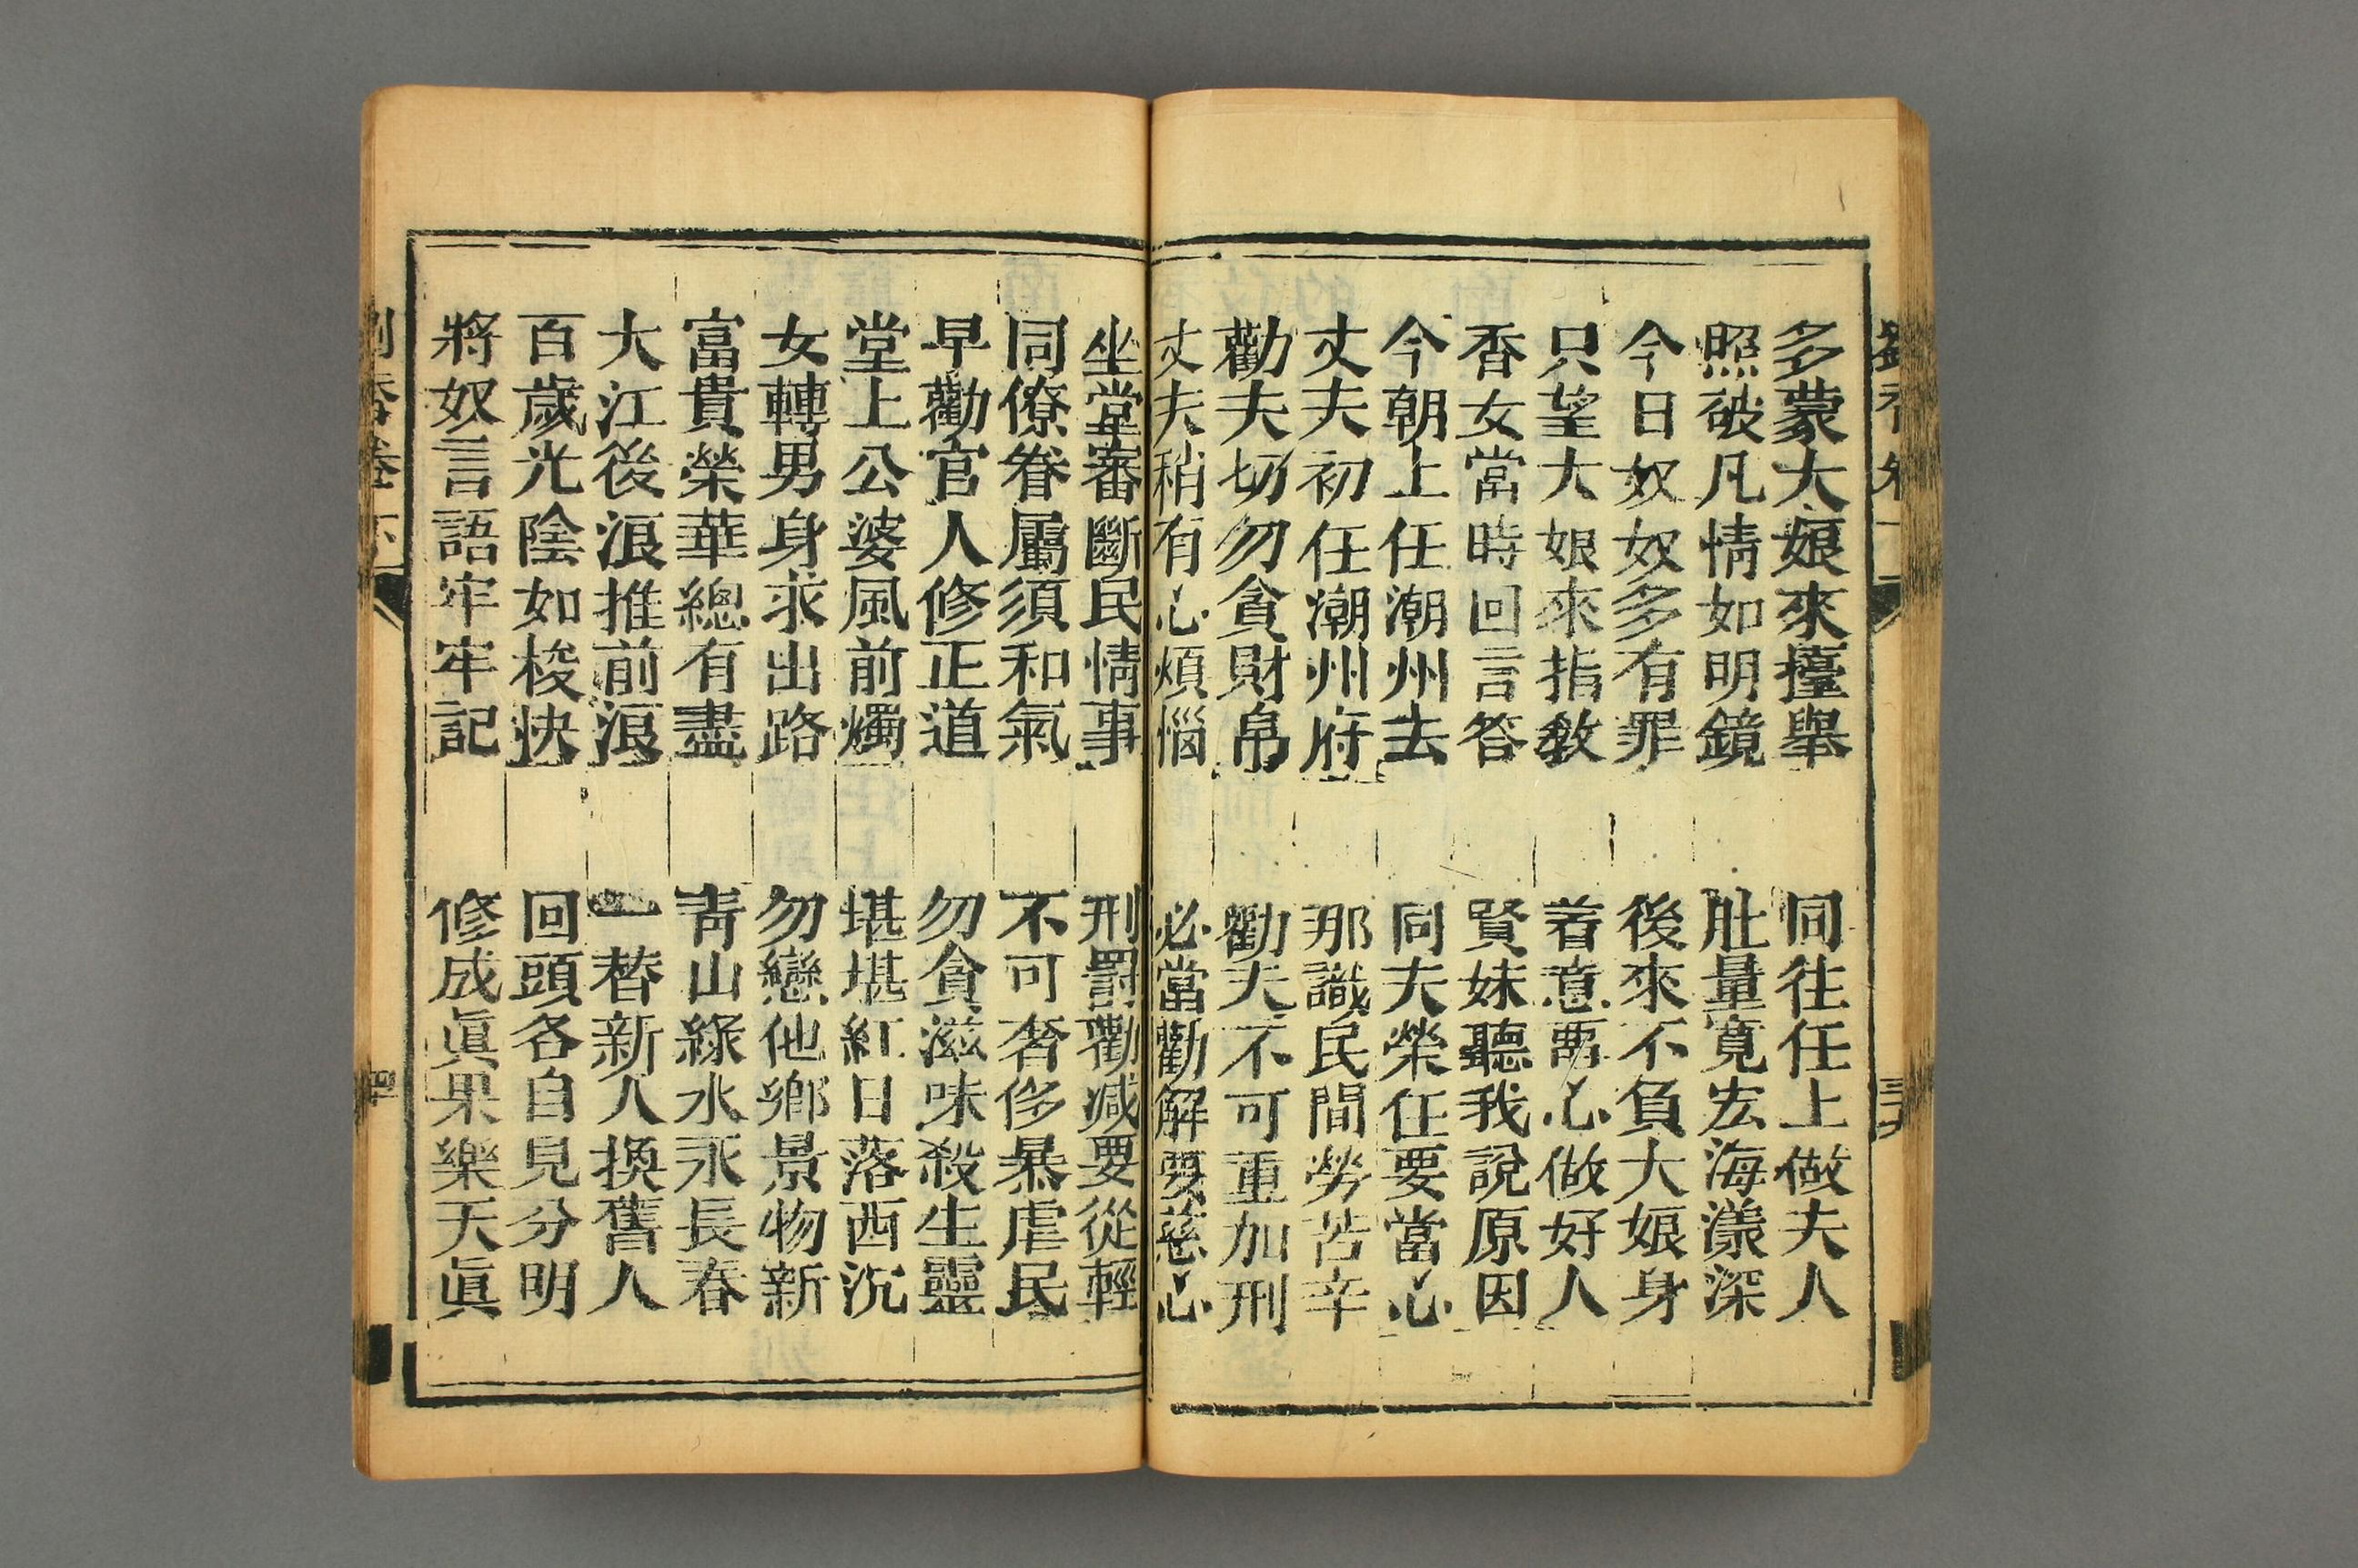 多蒙大娘來擡舉　同往任上做夫人
照破凡情如明鏡　肚量寬宏海漾深
今日奴奴多有罪　後來不負大娘身
只望大娘來指敎　着意要心做好人
香女當時回言答　賢妹聽我說原因
今朝上任潮州去　同夫榮任要當心
丈夫初任潮州府　那識民間勞苦辛
勸夫切勿貪財帛　勸夫不可重加刑
丈夫稍有心煩惱　必當勸解要慈心
坐堂審斷民情事　刑罰勸減要從輕
同僚眷屬須和氣　不可奢侈暴虐民
早勸官人修正道　勿貪滋味殺生靈
堂上公婆風前燭　堪堪紅日落西沉
女轉男身求出路　勿戀他鄉景物新
富貴榮華總有盡　靑山綠水永長春
大江後浪推前浪　一替新人換舊人
百歲光陰如梭快　回頭各自見分明
將奴言語牢牢記　修成眞果樂天眞